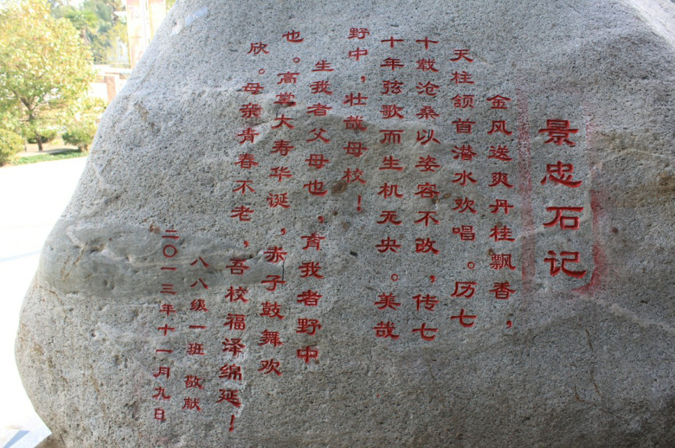 景忠石记
金风送爽丹桂飘香，
天柱颔首潜水欢唱。历七
十载沧桑以姿容不改，传七
十年弦歌而生机无央。美哉
野中，壮哉母校！
生我者父母也，育我者野中
也。高堂大寿华诞，赤子鼓舞欢
欣。母亲青春不老，吾校福泽绵延！
八八级一班 敬献
二〇一三年十一月九日